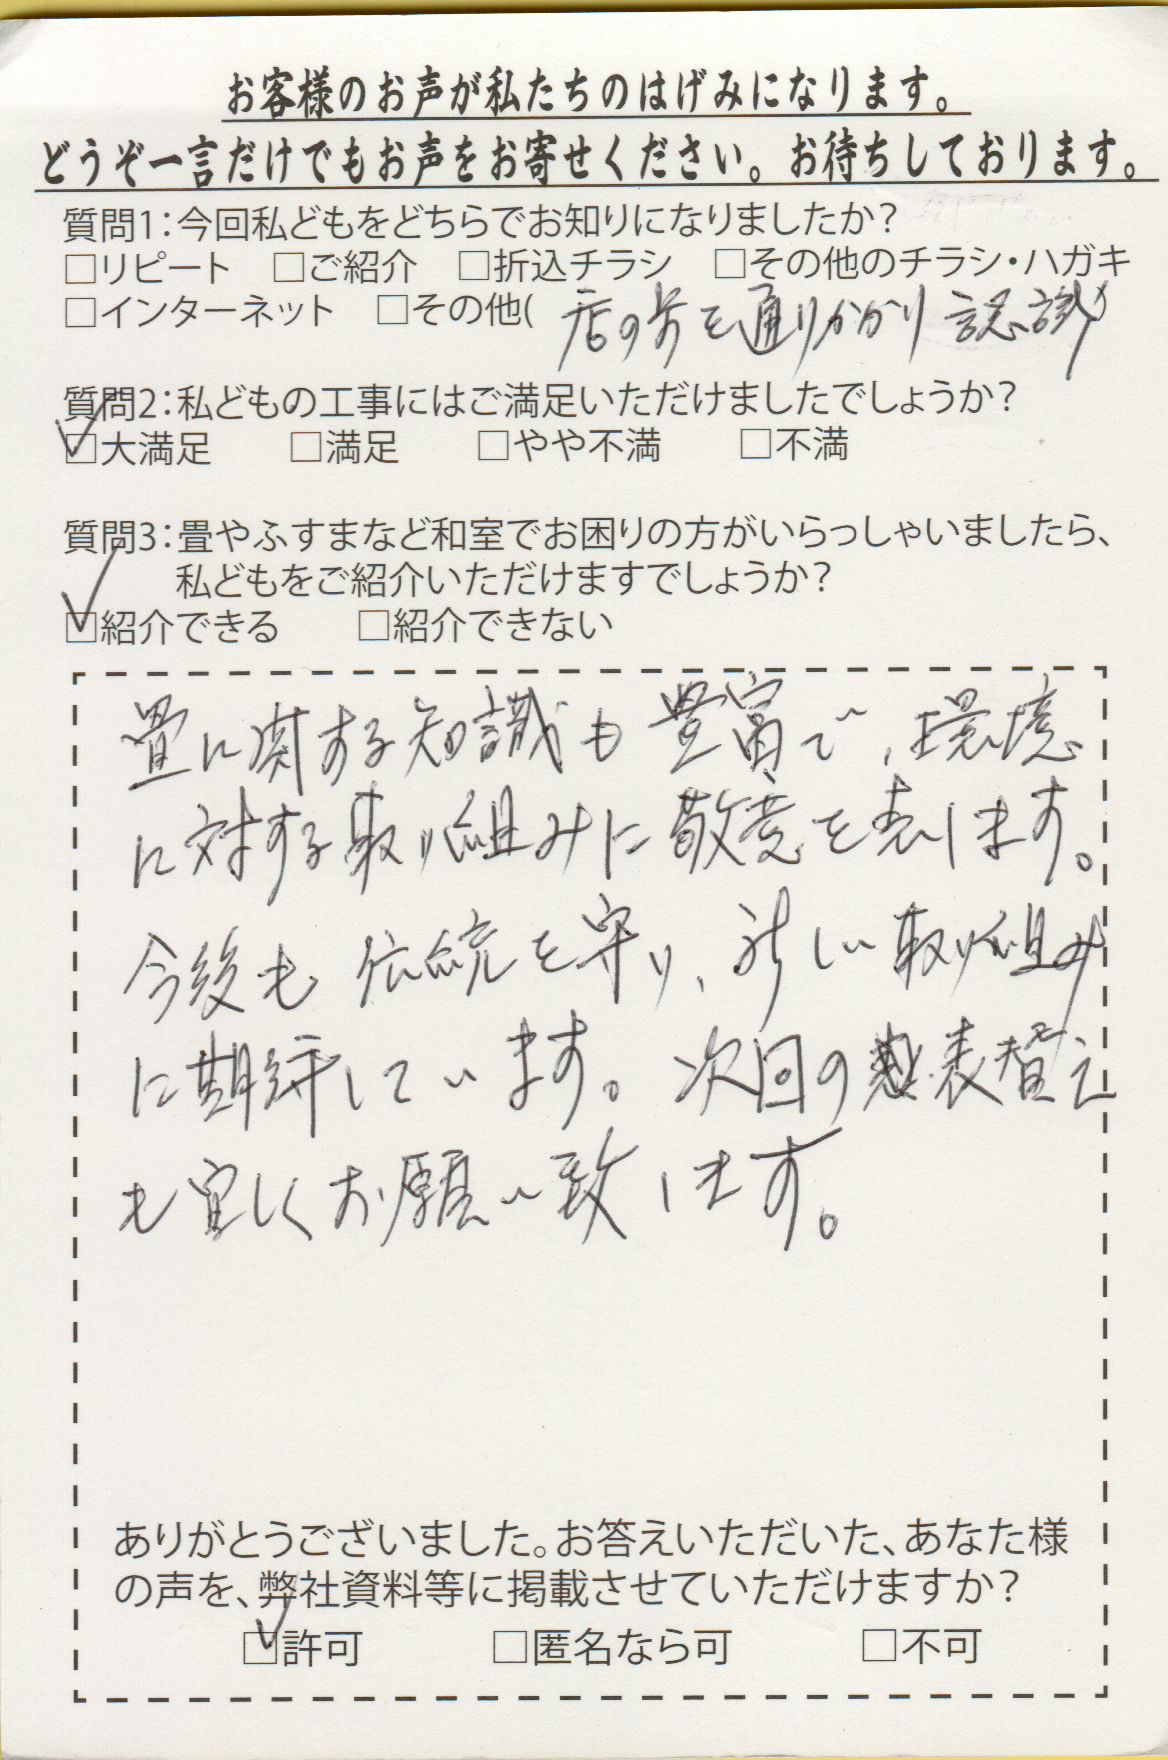 お客様のお声が私たちのはげみになります。
どうぞ一言だけでもお声をお寄せください。お待ちしております。
質問1:今回私どもをどちらでお知りになりましたか?
□リピート □ご紹介 □折込チラシ □その他のチラシ・ハガキ
□インターネット □その他( 店の前を通りかかり認識)
質問2:私どもの工事にはご満足いただけましたでしょうか?
☑大満足 □満足 □やや不満 □不満
質問3:畳やふすまなど和室でお困りの方がいらっしゃいましたら、
私どもをご紹介いただけますでしょうか?
☑紹介できる □紹介できない
畳に関する知識も豊富で、環境
に対する取り組みに敬意を表します。
今後も伝統を守り、新しい取り組み
に期待しています。次回の表替え
も宜しくお願い致します。
ありがとうございました。お答えいただいた、あなた様
の声を、弊社資料等に掲載させていただけますか?
☑許可 □匿名なら可 □不可